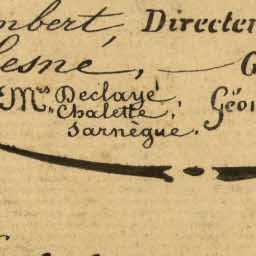 mbert, Directeu
esné, G
Mrs Declayé, Géo
" Chalette,
Sarnègue.